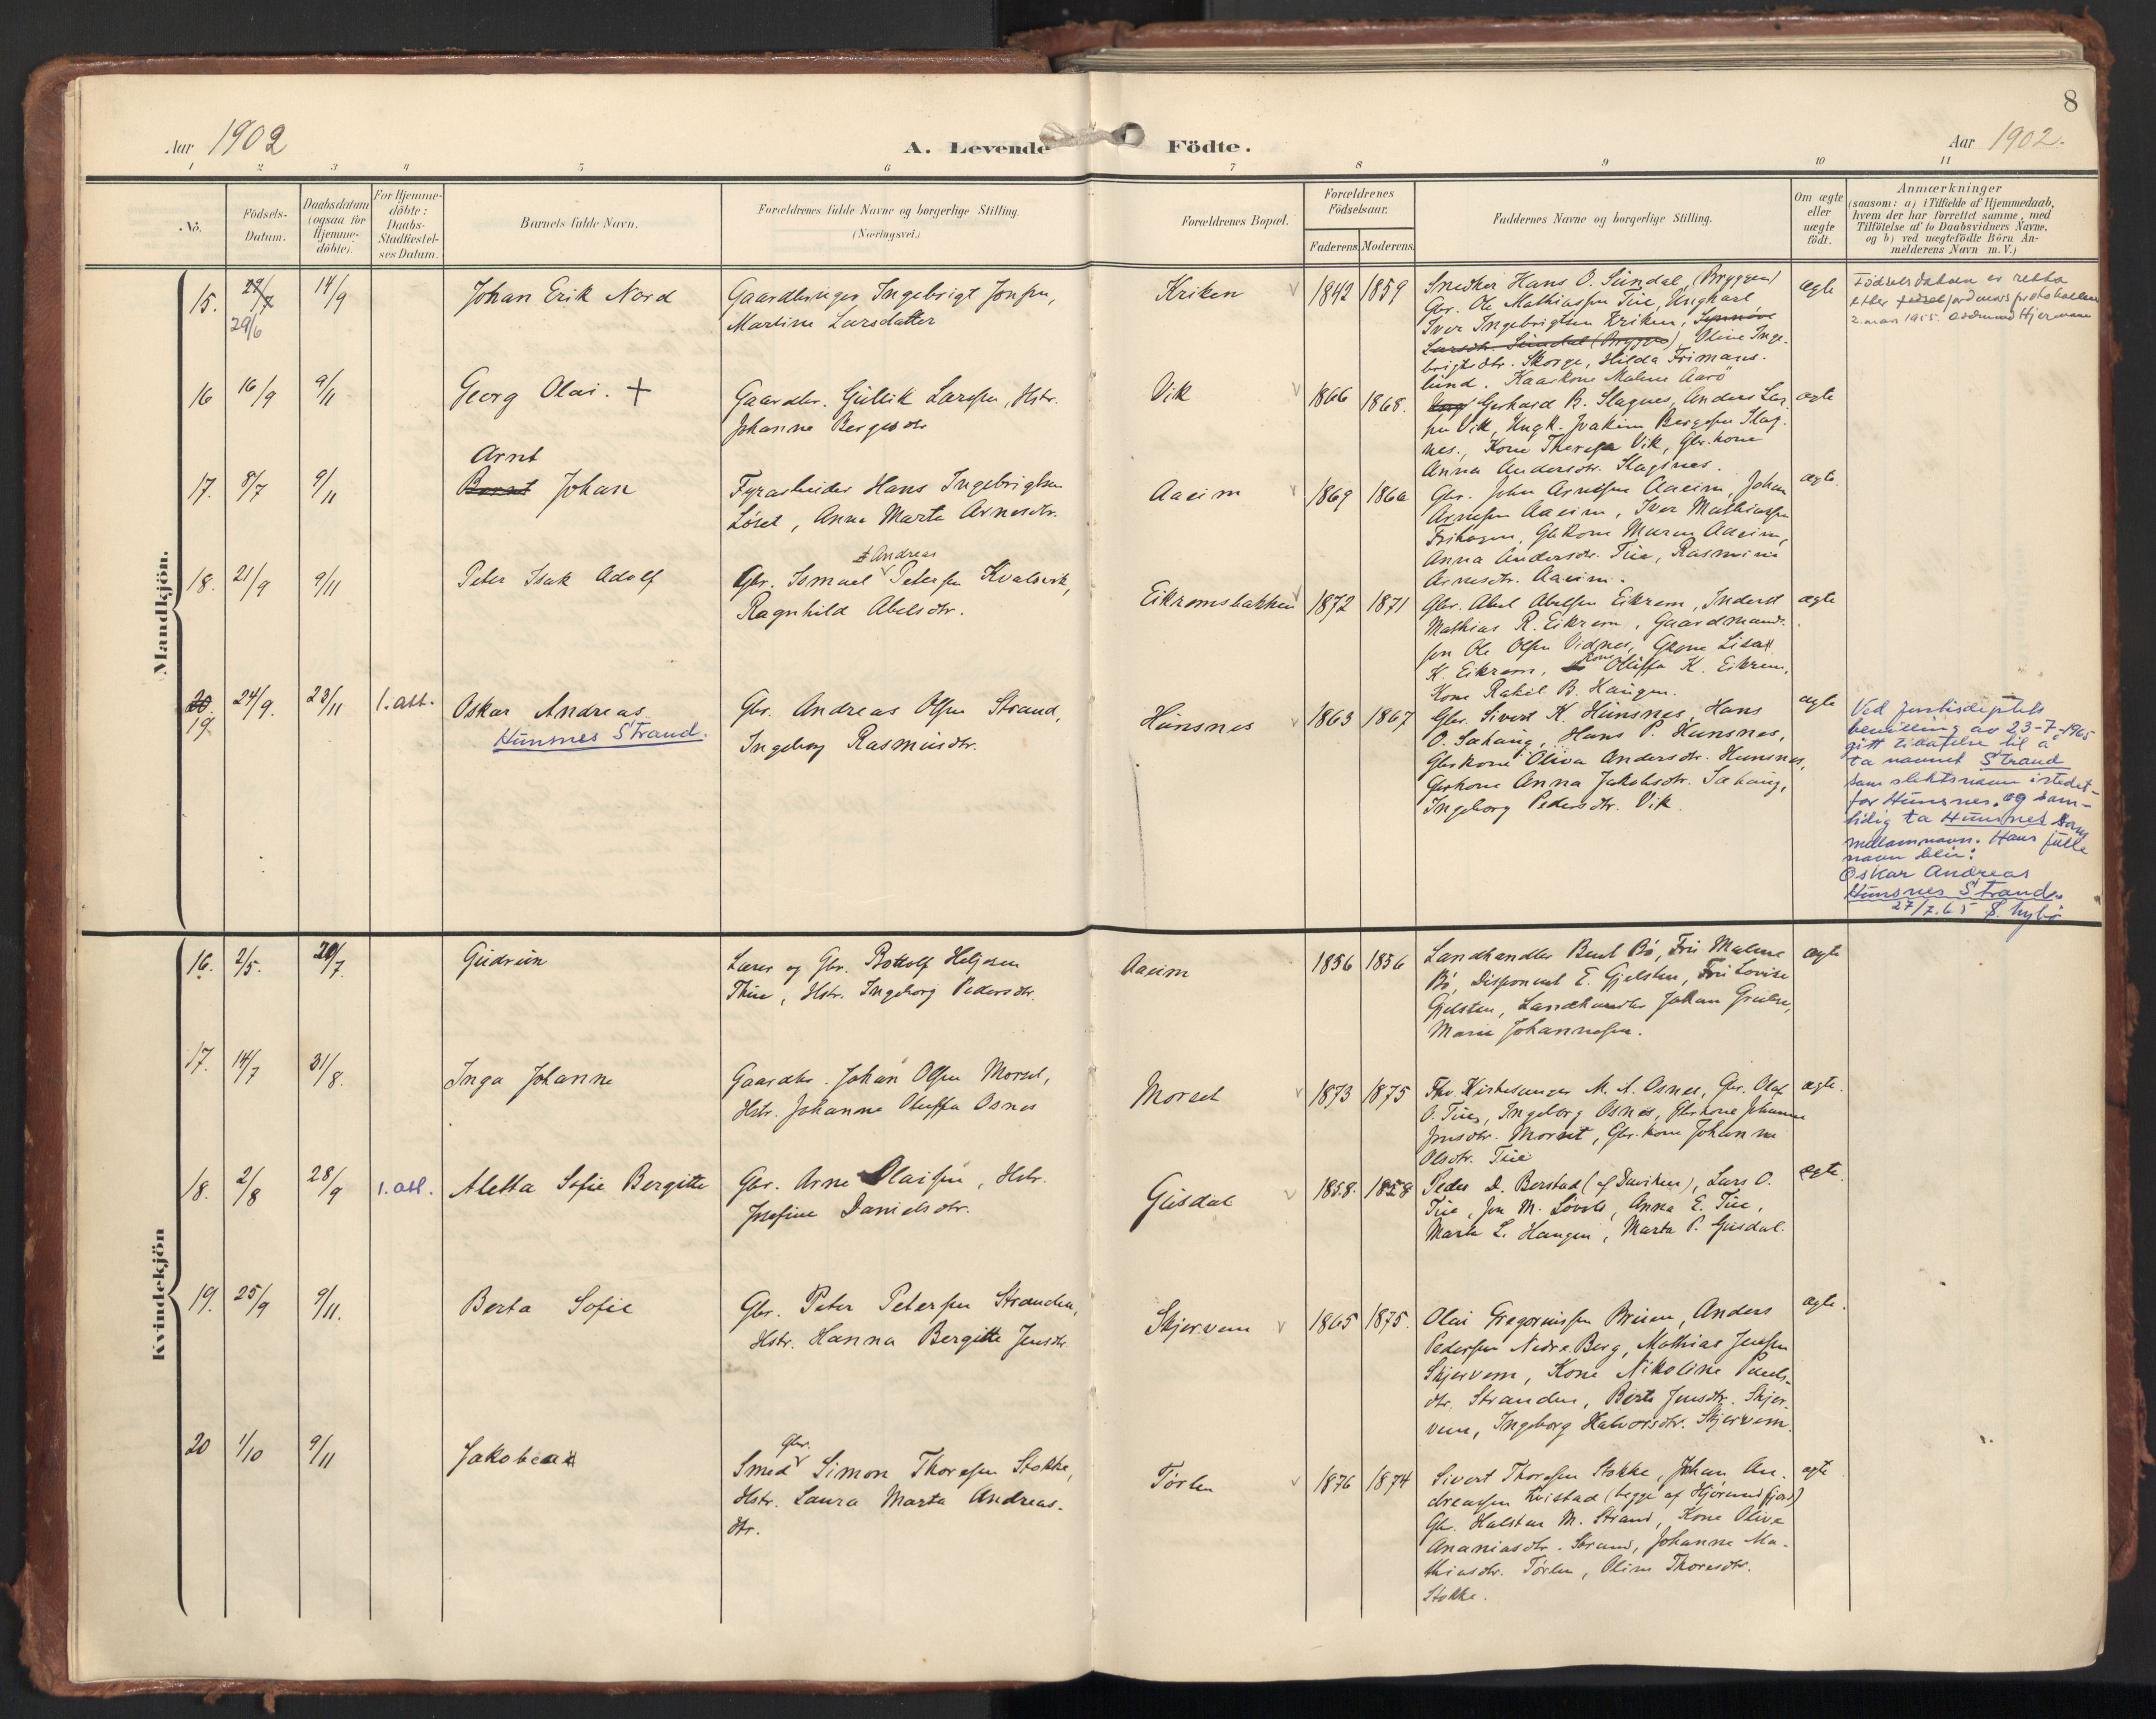 8
Aar 1902
A. Levende Födte.
Aar 1902.
1 2 3 4 5 6 7 8 9 10 11
No.
Födsels-
Datum.
Daabsdatum
(ogsaa for
Hjemme-
döbte).
For Hjemme-
döbte:
Daabs-
Stadfæstel-
ses Datum.
Barnets fulde Navn.
Forældrenes fulde Navne og borgerlige Stilling.
(Næringsvei.)
Forældrenes Bopæl.
Forældrenes
Födselsaar.
Faderens. Moderens.
Faddernes Navne og borgerlige Stilling.
Om ægte
eller
uægte
födt.
Anmærkninger
(saasom: a) i Tilfælde af Hjemmedaab,
hvem der har forrettet samme, med
Tilföielse af to Daabsvidners Navne,
og b) ved uægtefödte Börn An-
melderens Navn m. V.)
Mandkjön.
15.
27/7
29/6
14/9
Johan Erik Nord
Gaardbruger Ingebrigt Jonsen,
Martine Larsdatter
Kriken
1842 1859
Snedker Hans O. Sundal, (Bryggen)
Gbr. Ole Mathiassen Tue, Ungkarl
Iver Ingebrigtsen Kriken, Synnöve
Larsdtr. Sundal (Bryggen), Oline Inge-
brigtsdtr. Skorge, Hilda Frimans-
lund. Kaarkone Malene Aarö
ægte
Födselsdatoen er retta
etter jordmors protokollen
2. mars 1955. Hjermann
16 16/9 9/11
Georg Olai. +
Gaardbr. Gullik Larsen, Hstr.
Johanne Bergesdtr
Vik
1866 1868.
Gerhard B. Slagnes, Anders Lar-
sen Vik, Ungk. Joakim Bergesen Slag-
nes, Kone Therese Vik, Gbr.kone
Anna Andersdtr. Slagnes.
ægte
17. 8/7 9/11
Arnt
Bernt Johan
Fyrarbeider Hans Ingebrigtsen
Löset, Anne Marta Arnesdtr.
Aaeim
1869 1860
Gbr. John Arnesen Aaeim, Johan
Arnesen Aaeim, Iver Mathiassen
Frihagen, Gbkone Maren Aaeim,
Anna Andersdtr. Tue, Rasmine
Arnesdtr. Aaeim.
ægte.
18. 21/9 9/11
Peter Isak Adolf
Andreas
Gbr. Ismael Petersen Kvalsvik,
Ragnhild Abelsdtr.
Eikremsbakken
1872 1871
Gbr. Abel Abelsen Eikrem, Inderst
Mathias R. Eikrem, Gaardmands-
sen Ole Olsen Vidnes, Gkone Lisa
K. Eikrem, Kone Oluffa K. Eikrem,
Kone Rakel B. Haugen.
ægte
20.
19 24/9. 23/11 1. att.
Oskar Andreas
Hunsnes Strand.
Gbr. Andreas Olsen Strand,
Ingeborg Rasmusdtr.
Hunsnes
1863 1867
Gbr. Sivert K. Hunsnes, Hans
O. Sæhaug, Hans P. Hunsnes,
Gbrkone Oliva Andersdtr. Hunsnes,
Gbrkone Anna Jakobsdtr. Sæhaug,
Ingeborg Pedersdtr. Vik.
ægte
Ved justisdeptets
bevilling av 23-7-1965
gitt tillatelse til å
ta navnet Strand
som slektsnavn istedet-
for Hunsnes, og sam-
tidig ta Hunsnes som
mellomnavn. Hans fulle
navn blir:
Oskar Andreas
Hunsnes Strand.
27/7.65
Kvindekjön
16. 2/5. 20/7
Gudrun
Lærer og Gbr. Bottolf Helgesen
Thue, Hstr. Ingeborg Pedersdtr.
Aaeim
1856 1856
Landhandler Bent Bö, Fru Malene
Bö, Disponent E. Gjelsten, Fru Lovise
Gjelsten, Landhandler Johan
Marie Johannesen.
ægte
17. 14/7 31/8.
Inga Johanne
Gaardbr. Johan Olsen Morset,
Hstr. Johanne Oluffa Osnes
Morset
1873 1875
Fhv. Kirkesanger M. A. Osnes, Gbr. Olaf
O. Tue, Ingeborg Osnes, Gbrkone Johanne
Jonsdtr. Morset, Gbr. kone Johanne
Olsdtr. Tue
ægte.
18. 2/8 28/9 1. att.
Aletta Sofie Bergitte
Gbr. Arne Olaisen, Hstr.
Josefine Danielsdtr.
Gusdal
1858. 1858
Peder D. Berstad (af Daviken), Lars O.
Tue, Jon M. Lövold, Anna E. Tue,
Marta L. Haugen, Marta P. Gusdal.
ægte.
19. 25/9 9/11.
Berta Sofie
Gbr. Peter Petersen Stranden,
Hstr. Hanna Bergitte Jensdtr
Skjervem
1865 1875.
Olai Gregoriussen Bruen, Anders
Pedersen Nedre-Berg, Mathias Jensen
Skjervem, Kone Nikoline Pauls-
dtr. Stranden, Berte Jensdtr. Skjer-
vem, Ingeborg Halvorsdtr. Skjervem.
ægte.
20 1/10 9/11
Jakobea
Gbr.
Smed Simon Thoresen Stokke,
Hstr. Laura Marta Andreas-
dtr.
Törlen
1876 1874
Sivert Thoresen Stokke, Johan An-
dreassen Kvistad (begge af Hjörundfjord)
Gbr. Halstein M. Strand, Kone Oliva
Ananiasdtr. Strand, Johanne Ma-
thiasdtr. Törlen, Oline Thoresdtr.
Stokke.
ægte